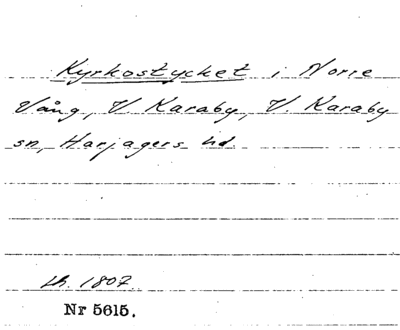 Kyrkostycket i Norre
Vång, V. Karaby, V. Karaby
sn, Harjagers hd.
Lh. 1807.
Nr 5615.